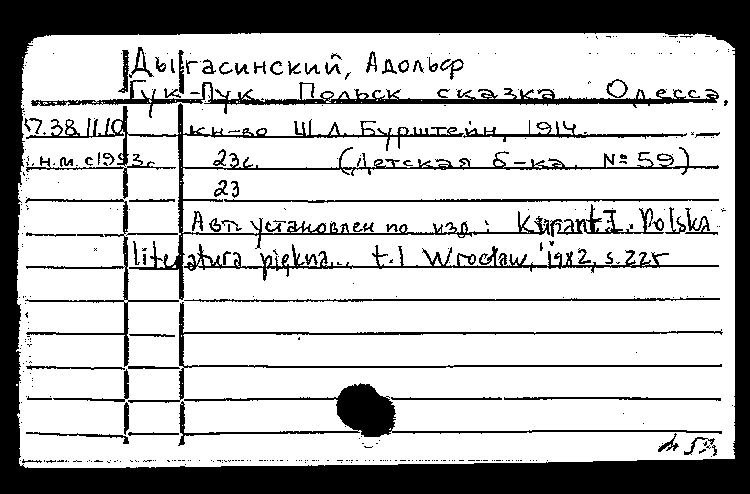 Дыгасинский, Адольф
Гук-Пук Польск сказка. Одесса,
37.38.11.10 кн-во Ш.Л. Бурштейн, 1914.
н.м. с1993г. 23с. (Детская б-ка. № 59)
23
Авт. установлен по изд.: Kupant I. Polska
literatura piękna... t.1 Wrocław, 1982, s. 225